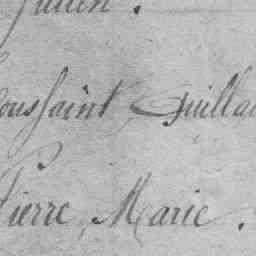 Julien.
Toussaint Guillau
Pierre Marie.